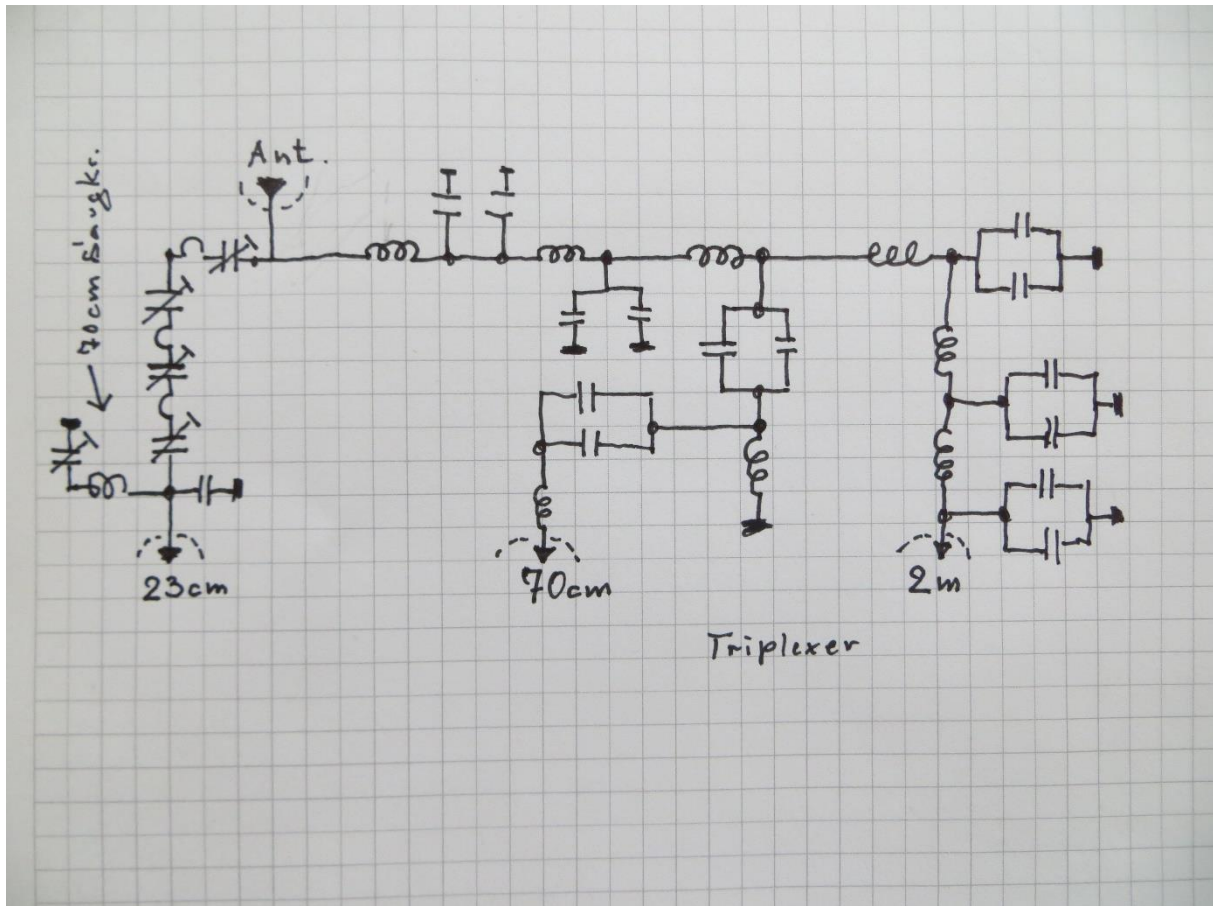 Ant.
70cm Saugkr.
23cm
70cm
2m
Triplexer